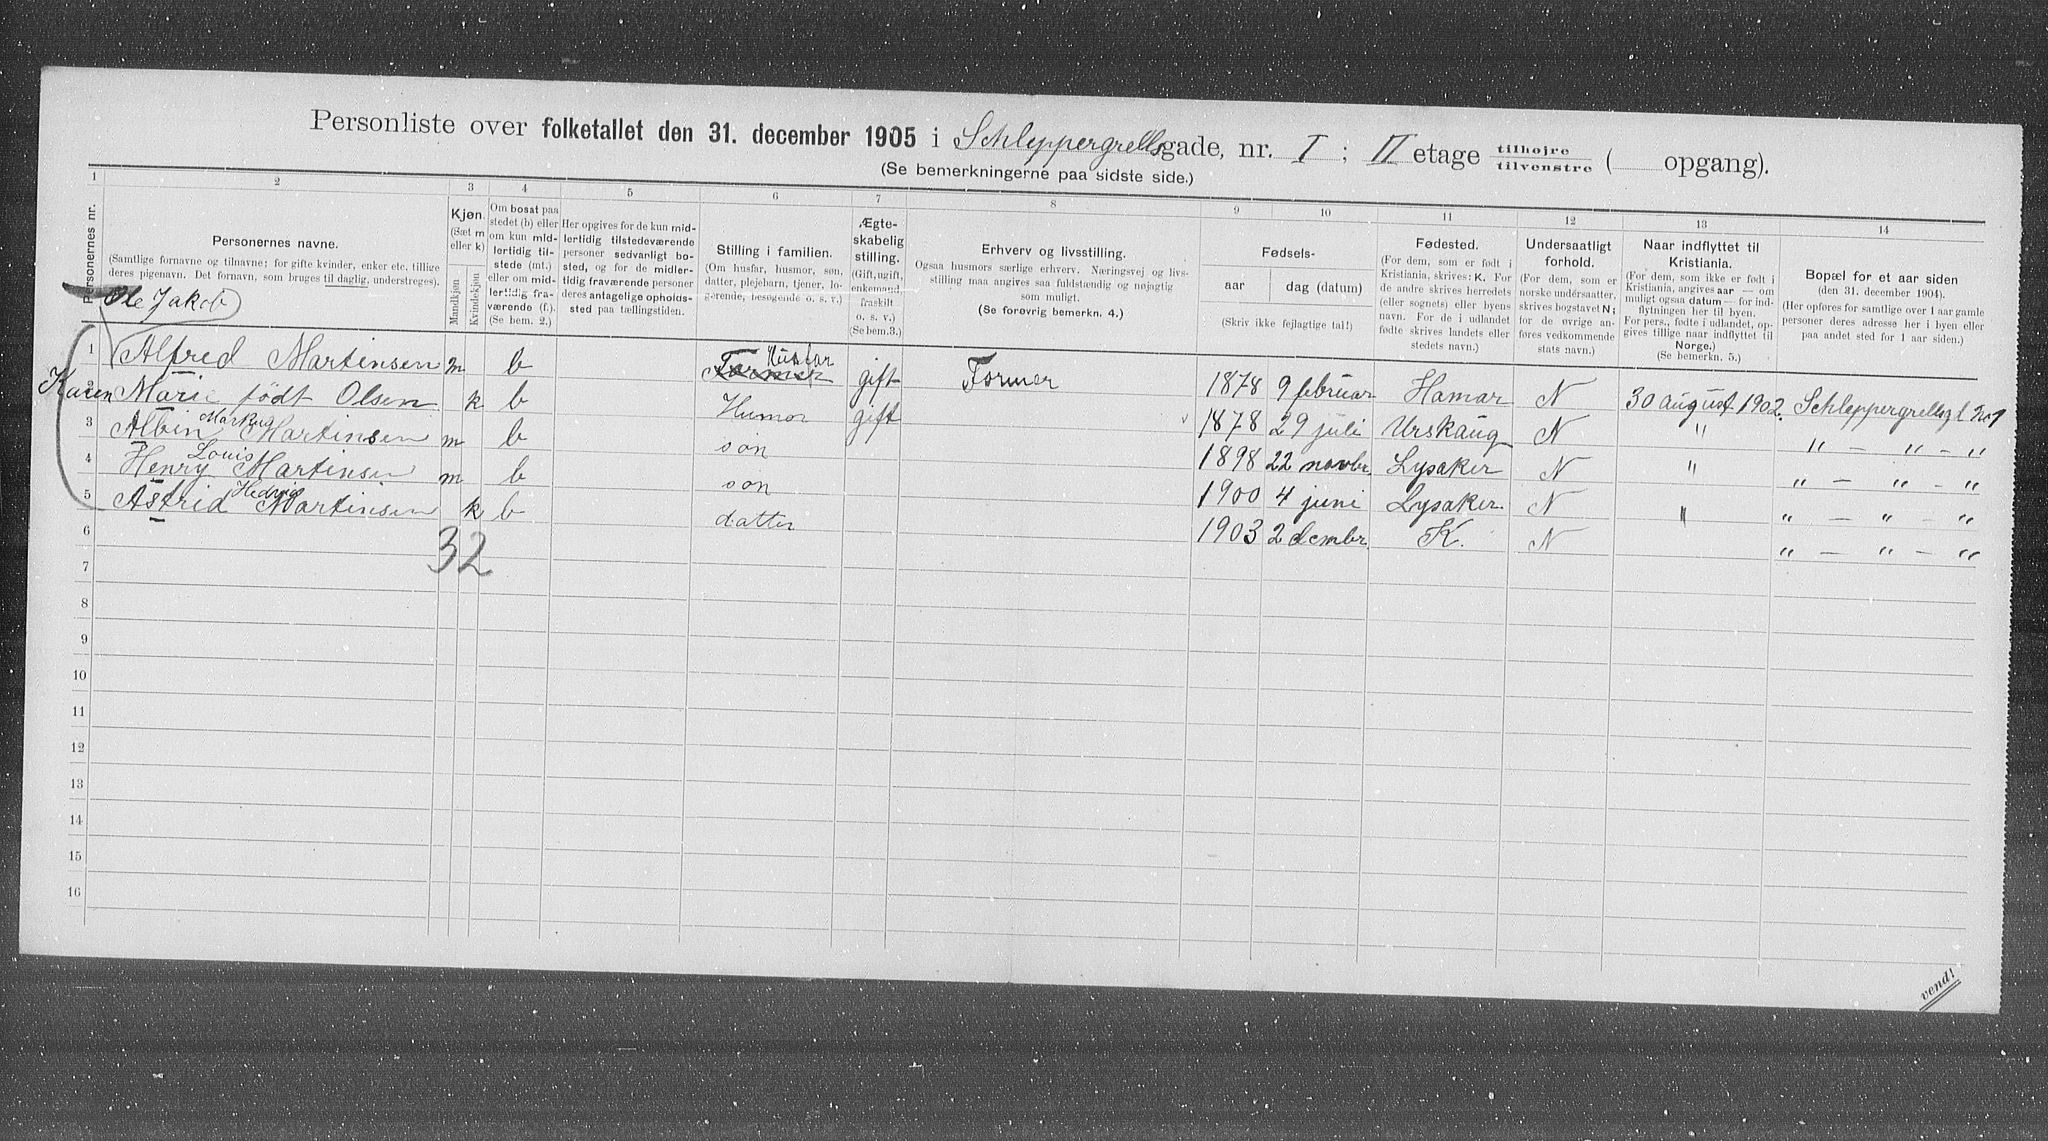 Personliste over folketallet den 31. december 1905 i Schleppergrellsgade, nr. I ; II etage tilhøjre tilvenstre ( opgang).
(Se bemerkningerne paa sidste side.)
1 2 3 4 5 6 7 8 9 10 11 12 13 14
Personernes nr.
Personernes navne.
(Samtlige fornavne og tilnavne; for gifte kvinder, enker etc. tillige
deres pigenavn. Det fornavn, som bruges til daglig, understreges).
Kjøn.
(Sæt m
eller k)
Mandkjøn
Kvindekjøn
Om bosat paa
stedet (b) eller
om kun mid-
lertidig til-
stede (mt.)
eller om mid-
lertidig fra-
værende (f.).
(Se bem. 2.)
Her opgives for de kun mid-
lertidig tilstedeværende
personer sedvanlig bo-
sted, og for de midler-
tidig fraværende personer
deres antagelige opholds-
sted paa tællingstiden.
Stilling i familien.
(Om husfar, husmor, søn,
datter, plejebarn, tjener, lo-
gerende, besøgende o. s. v.)
Ægte-
skabelig
stilling.
(Gift, ugift,
enkemand,
fraskilt
o. s. v.)
(Se bem. 3.)
Erhverv og livsstilling.
Ogsaa husmors særlige erhverv. Næringsvej og livs-
stilling maa angives saa fuldstændig og nøjagtig
som muligt.
(Se forøvrig bemerkn. 4.)
Fødsels-
aar
dag (datum)
(Skriv ikke fejlagtige tal!)
Fødested.
(For dem, som er født i
Kristiania, skrives: K. For
de andre skrives herredets
(eller sognets) eller byens
navn. For de i udlandet
fødte skrives landets eller
stedets navn.)
Undersaatligt
forhold.
(For dem, som er
norske undersaatter,
skrives bogstavet N;
for de øvrige an-
føres vedkommende
stats navn.)
Naar indflyttet til
Kristiania.
(For dem, som ikke er født i
Kristiania, angives aar — om
muligt ogsaa datum — for ind-
flytningen her til byen.
For pers., fødte i udlandet, op-
gives tillige naar indflyttet til
Norge.)
(Se bemerkn. 5.)
Bopæl for et aar siden
(den 31. december 1904).
(Her opføres for samtlige over 1 aar gamle
personer deres adresse her i byen eller
paa andet sted for 1 aar siden.)
Ole Jakob
Husfar
1 Alfred Martinsen m b Former gift Former 1878 9 februar Hamar N 30 august 1902. Schleppergrellsgt No 1
2 Karen Marie født Olsen k b Husmor gift 1878 29 juli Urskaug N " " — " — "
Markus
3 Albin Martinsen m b søn 1898 22 novbr. Lysaker N " " — " — "
Louis
4 Henry Martinsen m b søn 1900 4 juni Lysaker N " " — " — "
Hedvig
5 Astrid Martinsen k b datter 1903 2 dembr. K. N " — " — "
32
6
7
8
9
10
11
12
13
14
15
16
vend!